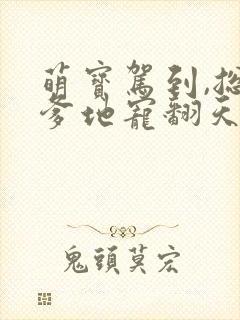 萌寳駕到,总
爹地寵翻天
鬼頭莫宏